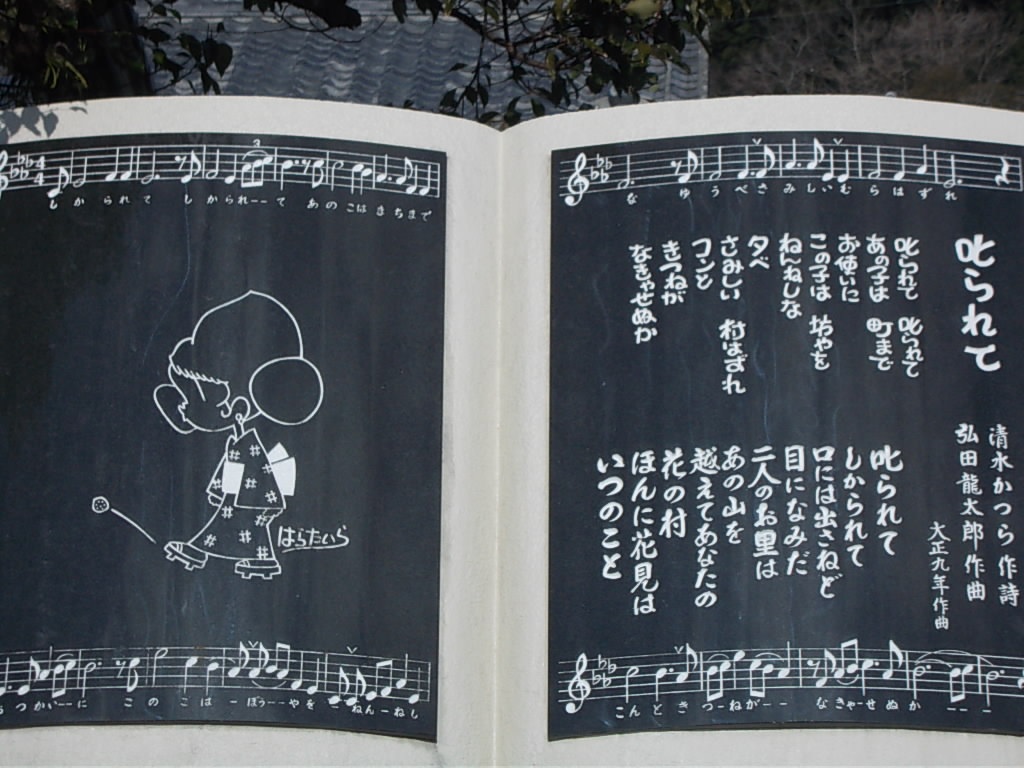 しかられて しかられーーて あのこは まちまで
はらたいら
うつかいーーに このこは ーぼうーーやを ねんーねし
な ゆうべさみしいむらはずれ
叱られて
清水かつら 作詩
弘田龍太郎 作曲
大正九年作曲
叱られて 叱られて
あの子は 町まで
お使いに
この子は 坊やを
ねんねしな
夕べ
さみしい 村はずれ
コンと
きつねが
なきゃせぬか
叱られて
しかられて
口には出さねど
目になみだ
二人のお里は
あの山を
越えてあなたの
花の村
ほんに花見は
いつのこと
こんときつーねがーー なきゃーせぬか ーーー